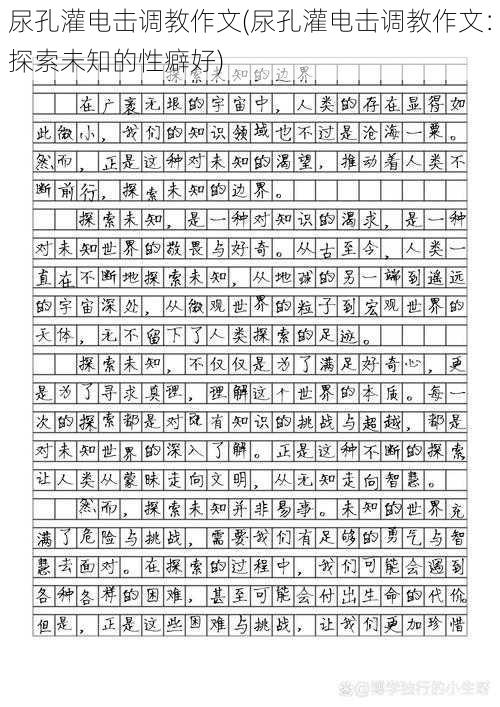 尿孔灌电击调教作文(尿孔灌电击调教作文：
探索未知的性癖好)
探索未知的边界
在广袤无垠的宇宙中，人类的存在显得如
此微小，我们的知识领域也不过是沧海一粟。
然而，正是这种对未知的渴望，推动着人类不
断前行，探索未知的边界。
探索未知，是一种对知识的渴求，是一种
对未知世界的敬畏与好奇。从古至今，人类一
直在不断地探索未知，从地球的另一端到遥远
的宇宙深处，从微观世界的粒子到宏观世界的
天体，无不留下了人类探索的足迹。
探索未知，不仅仅是为了满足好奇心，更
是为了寻求真理，理解这个世界的本质。每一
次的探索都是对既有知识的挑战与超越，都是
对未知世界的深入了解。正是这种不断的探索，
让人类从蒙昧走向文明，从无知走向智慧。
然而，探索未知并非易事。未知的世界充
满了危险与挑战，需要我们有足够的勇气与智
慧去面对。在探索的过程中，我们可能会遇到
各种各样的困难，甚至可能会付出生命的代价。
但是，正是这些困难与挑战，让我们更加珍惜
@博学独行的小生呀